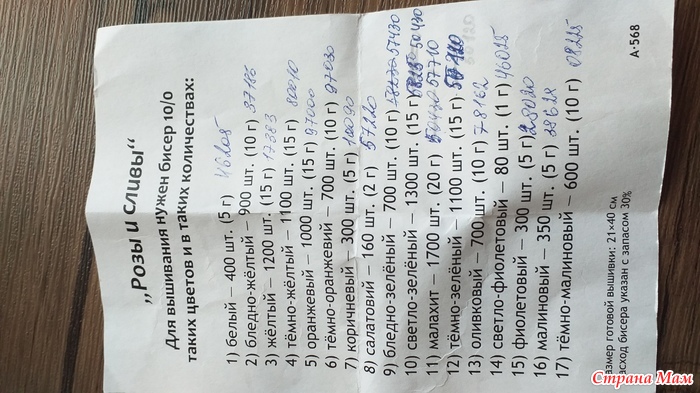 „Розы и Сливы“
Для вышивания нужен бисер 10/0
таких цветов и в таких количествах:
1) белый – 400 шт. (5 г) 46205
2) бледно-жёлтый – 900 шт. (10 г) 37186
3) жёлтый – 1200 шт. (15 г) 17383
4) тёмно-жёлтый – 1100 шт. (15 г) 80010
5) оранжевый – 1000 шт. (15 г) 97000
6) тёмно-оранжевий – 700 шт. (10 г) 97030
7) коричневый – 300 шт. (5 г) 10090
8) салатовий – 160 шт. (2 г) 57220
9) бледно-зелёный – 700 шт. (10 г) 57430
10) светло-зелёный – 1300 шт. (15 г) 50430
11) малахит – 1700 шт. (20 г) 57710
12) тёмно-зелёный – 1100 шт. (15 г)
13) оливковый – 700 шт. (10 г) 78162
14) светло-фиолетовый – 80 шт. (1 г) 46025
15) фиолетовый – 300 шт. (5 г) 28020
16) малиновый – 350 шт. (5 г) 18628
17) тёмно-малиновый – 600 шт. (10 г) 08225
азмер готовой вышивки: 21×40 см
асход бисера указан с запасом 30%
А-568
Страна Мам